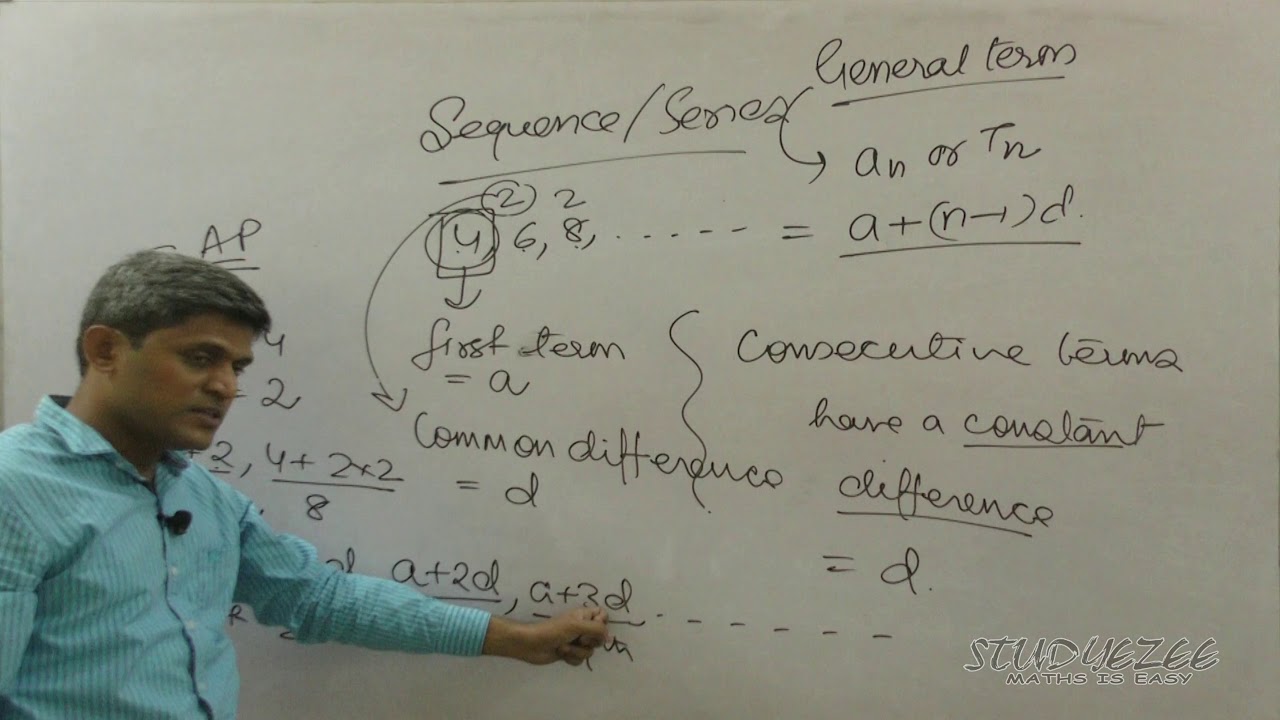 General term
Sequence/Series
an or Tn
2 2
4, 6, 8, ...... = a+(n-1)d.
AP
4
= 2
first term
= a
Consecutive terms
have a constant
difference
= d.
Common difference
= d
+2, 4+2×2
8
d, a+2d, a+3d . - - - - -
STUDYEZEE
MATHS IS EASY